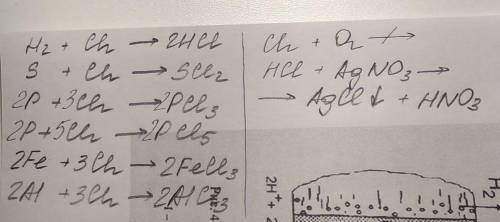 H₂ + Cl₂ → 2HCl
S + Cl₂ → SCl₂
2P + 3Cl₂ → 2PCl₃
2P + 5Cl₂ → 2PCl₅
2Fe + 3Cl₂ → 2FeCl₃
2Al + 3Cl₂ → 2AlCl₃
Cl₂ + O₂ ↛
HCl + AgNO₃ →
→ AgCl↓ + HNO₃
H₂
2H⁺ + 2